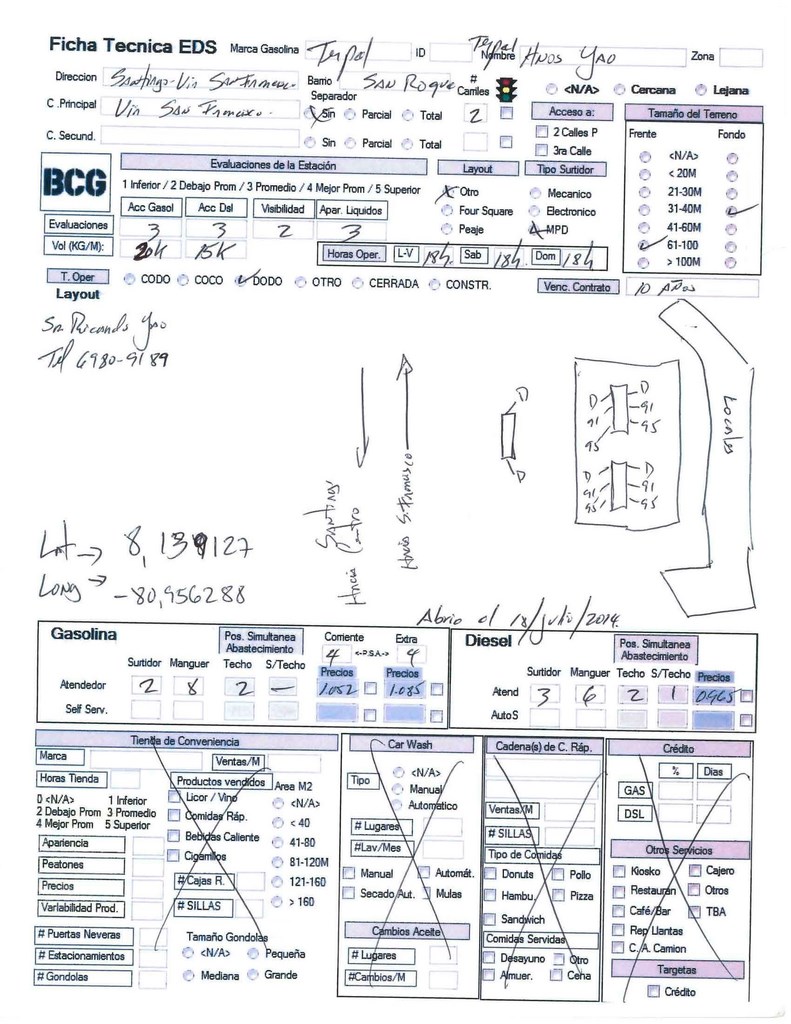 Ficha Tecnica EDS Marca Gasolina Terpel ID Nombre Terpel Hnos Yao Zona
Direccion Santiago-Vía San Francisco Barrio San Roque # Carriles <N/A> Cercana Lejana
Separador
C .Principal Vía San Francisco. Sin Parcial Total 2 Acceso a: Tamaño del Terreno
C. Secund. Sin Parcial Total 2 Calles P Frente Fondo
3ra Calle <N/A>
BCG Evaluaciones de la Estación Layout Tipo Surtidor < 20M
1 Inferior / 2 Debajo Prom / 3 Promedio / 4 Mejor Prom / 5 Superior Otro Mecanico 21-30M
Acc Gasol Acc Dsl Visibilidad Apar. Liquidos Four Square Electronico 31-40M
Evaluaciones 3 3 2 3 Peaje MPD 41-60M
61-100
Vol (KG/M): 20K 15K Horas Oper. L-V 18h. Sab 18h. Dom 18h > 100M
T. Oper CODO COCO DODO OTRO CERRADA CONSTR. Venc. Contrato 10 Años
Layout
Sr Ricardo Yao
Tel 6980-9189
D
D
D D
91 91
95 95
D D
91 91
95 95
Locales
Hacia Santiago Centro
Hacia S. Francisco
Lat → 8,139127
Long → -80,956288
Abrio el 18/julio/2014.
Gasolina Pos. Simultanea Abastecimiento Corriente Extra Diesel Pos. Simultanea Abastecimiento
4 <-P.S.A.-> 4
Surtidor Manguer Techo S/Techo Precios Precios Surtidor Manguer Techo S/Techo Precios
Atendedor 2 8 2 — 1.052 1.085 Atend 3 6 2 1 0.965
Self Serv. AutoS
Tienda de Conveniencia Car Wash Cadena(s) de C. Ráp. Crédito
Marca Ventas/M
Horas Tienda Productos vendidos Area M2
0 <N/A> 1 Inferior
2 Debajo Prom 3 Promedio
4 Mejor Prom 5 Superior
Licor / Vino
Comidas Ráp.
Bebidas Caliente
Cigarrillos
<N/A>
< 40
41-80
81-120M
121-160
> 160
Apariencia
Peatones
Precios
Variabilidad Prod.
# Cajas R.
# SILLAS
# Puertas Neveras
# Estacionamientos
# Gondolas
Tamaño Gondolas
<N/A> Pequeña
Mediana Grande
Tipo <N/A>
Manual
Automático
# Lugares
#Lav/Mes
Manual Automát.
Secado Aut. Mulas
Cambios Aceite
# Lugares
#Cambios/M
Ventas/M
# SILLAS
Tipo de Comidas
Donuts Pollo
Hambu. Pizza
Sandwich
Comidas Servidas
Desayuno Otro
Almuer. Cena
% Dias
GAS
DSL
Otros Servicios
Kiosko Cajero
Restauran Otros
Café/Bar TBA
Rep Llantas
C. A. Camion
Targetas
Crédito